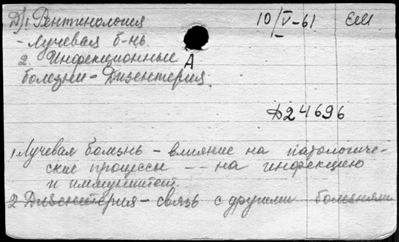 Д/. Рентинология 10/V-61 ЕМ
- Лучевая б-нь
2. Инфекционные А
болезни - Дизентерия.
Д24696
1. Лучевая болезнь - влияние на патологиче-
ские процессы -- на инфекцию
и иммунитет.
2 Дизентерия - связь с другими болезнями